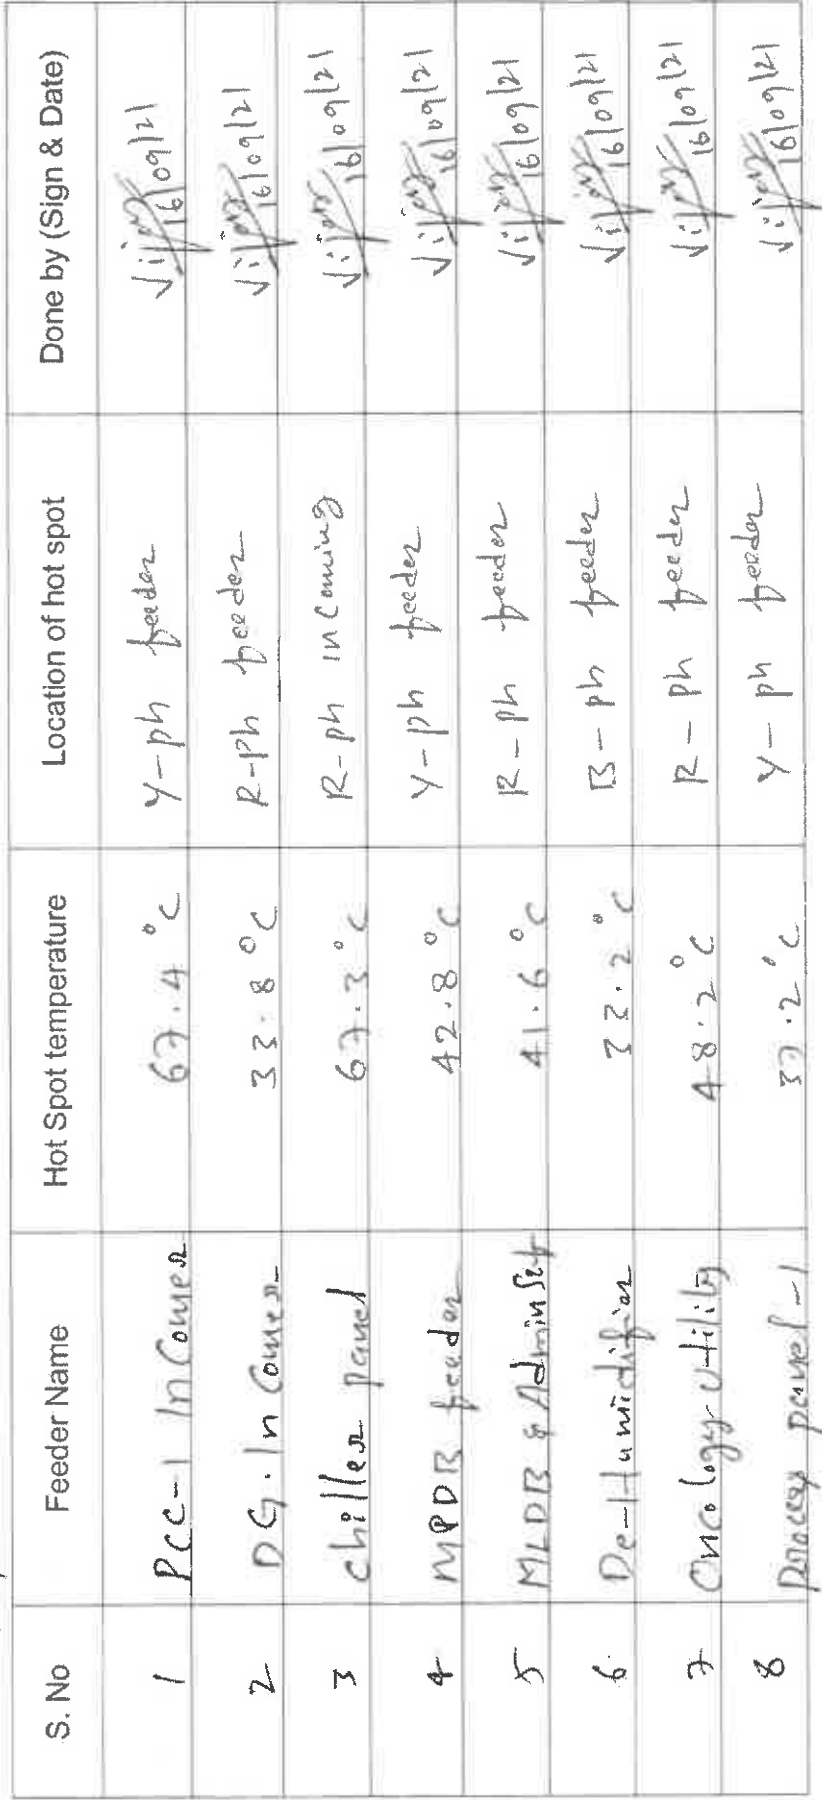 S. No Feeder Name Hot Spot temperature Location of hot spot Done by (Sign & Date)
1 PCC-1 InComer 67.4 °C Y-ph feeder 16/09/21
2 DG. InComer 33.8 °C R-Ph feeder 16/09/21
3 chiller panel 67.3 °C R-ph inComing 16/09/21
4 MPDB feeder 42.8 °C Y-ph feeder 16/09/21
5 MLDB & 41.6 °C R-Ph feeder 16/09/21
6 De-Humidifier 33.2 °C B-ph feeder 16/09/21
7 Oncology-Utility 48.2 °C R-ph feeder 16/09/21
8 Process panel-1 37.2 °C Y-ph feeder 16/09/21